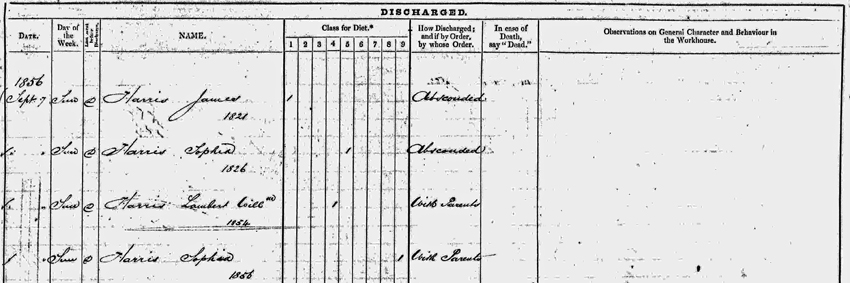 DISCHARGED.
DATE. Day of the Week. NAME. Class for Diet.* How Discharged; and if by Order, by whose Order. In case of Death, say "Dead." Observations on General Character and Behaviour in the Workhouse.
1 2 3 4 5 6 7 8 9
1856
Sept 7 Sun Harris James 1 Absconded
1821
Sun Harris Sophia 1 Absconded
1826
Sun Harris Lambert Will^m 1 With Parents
1854
Sun Harris Sophia 1 With Parents
1856